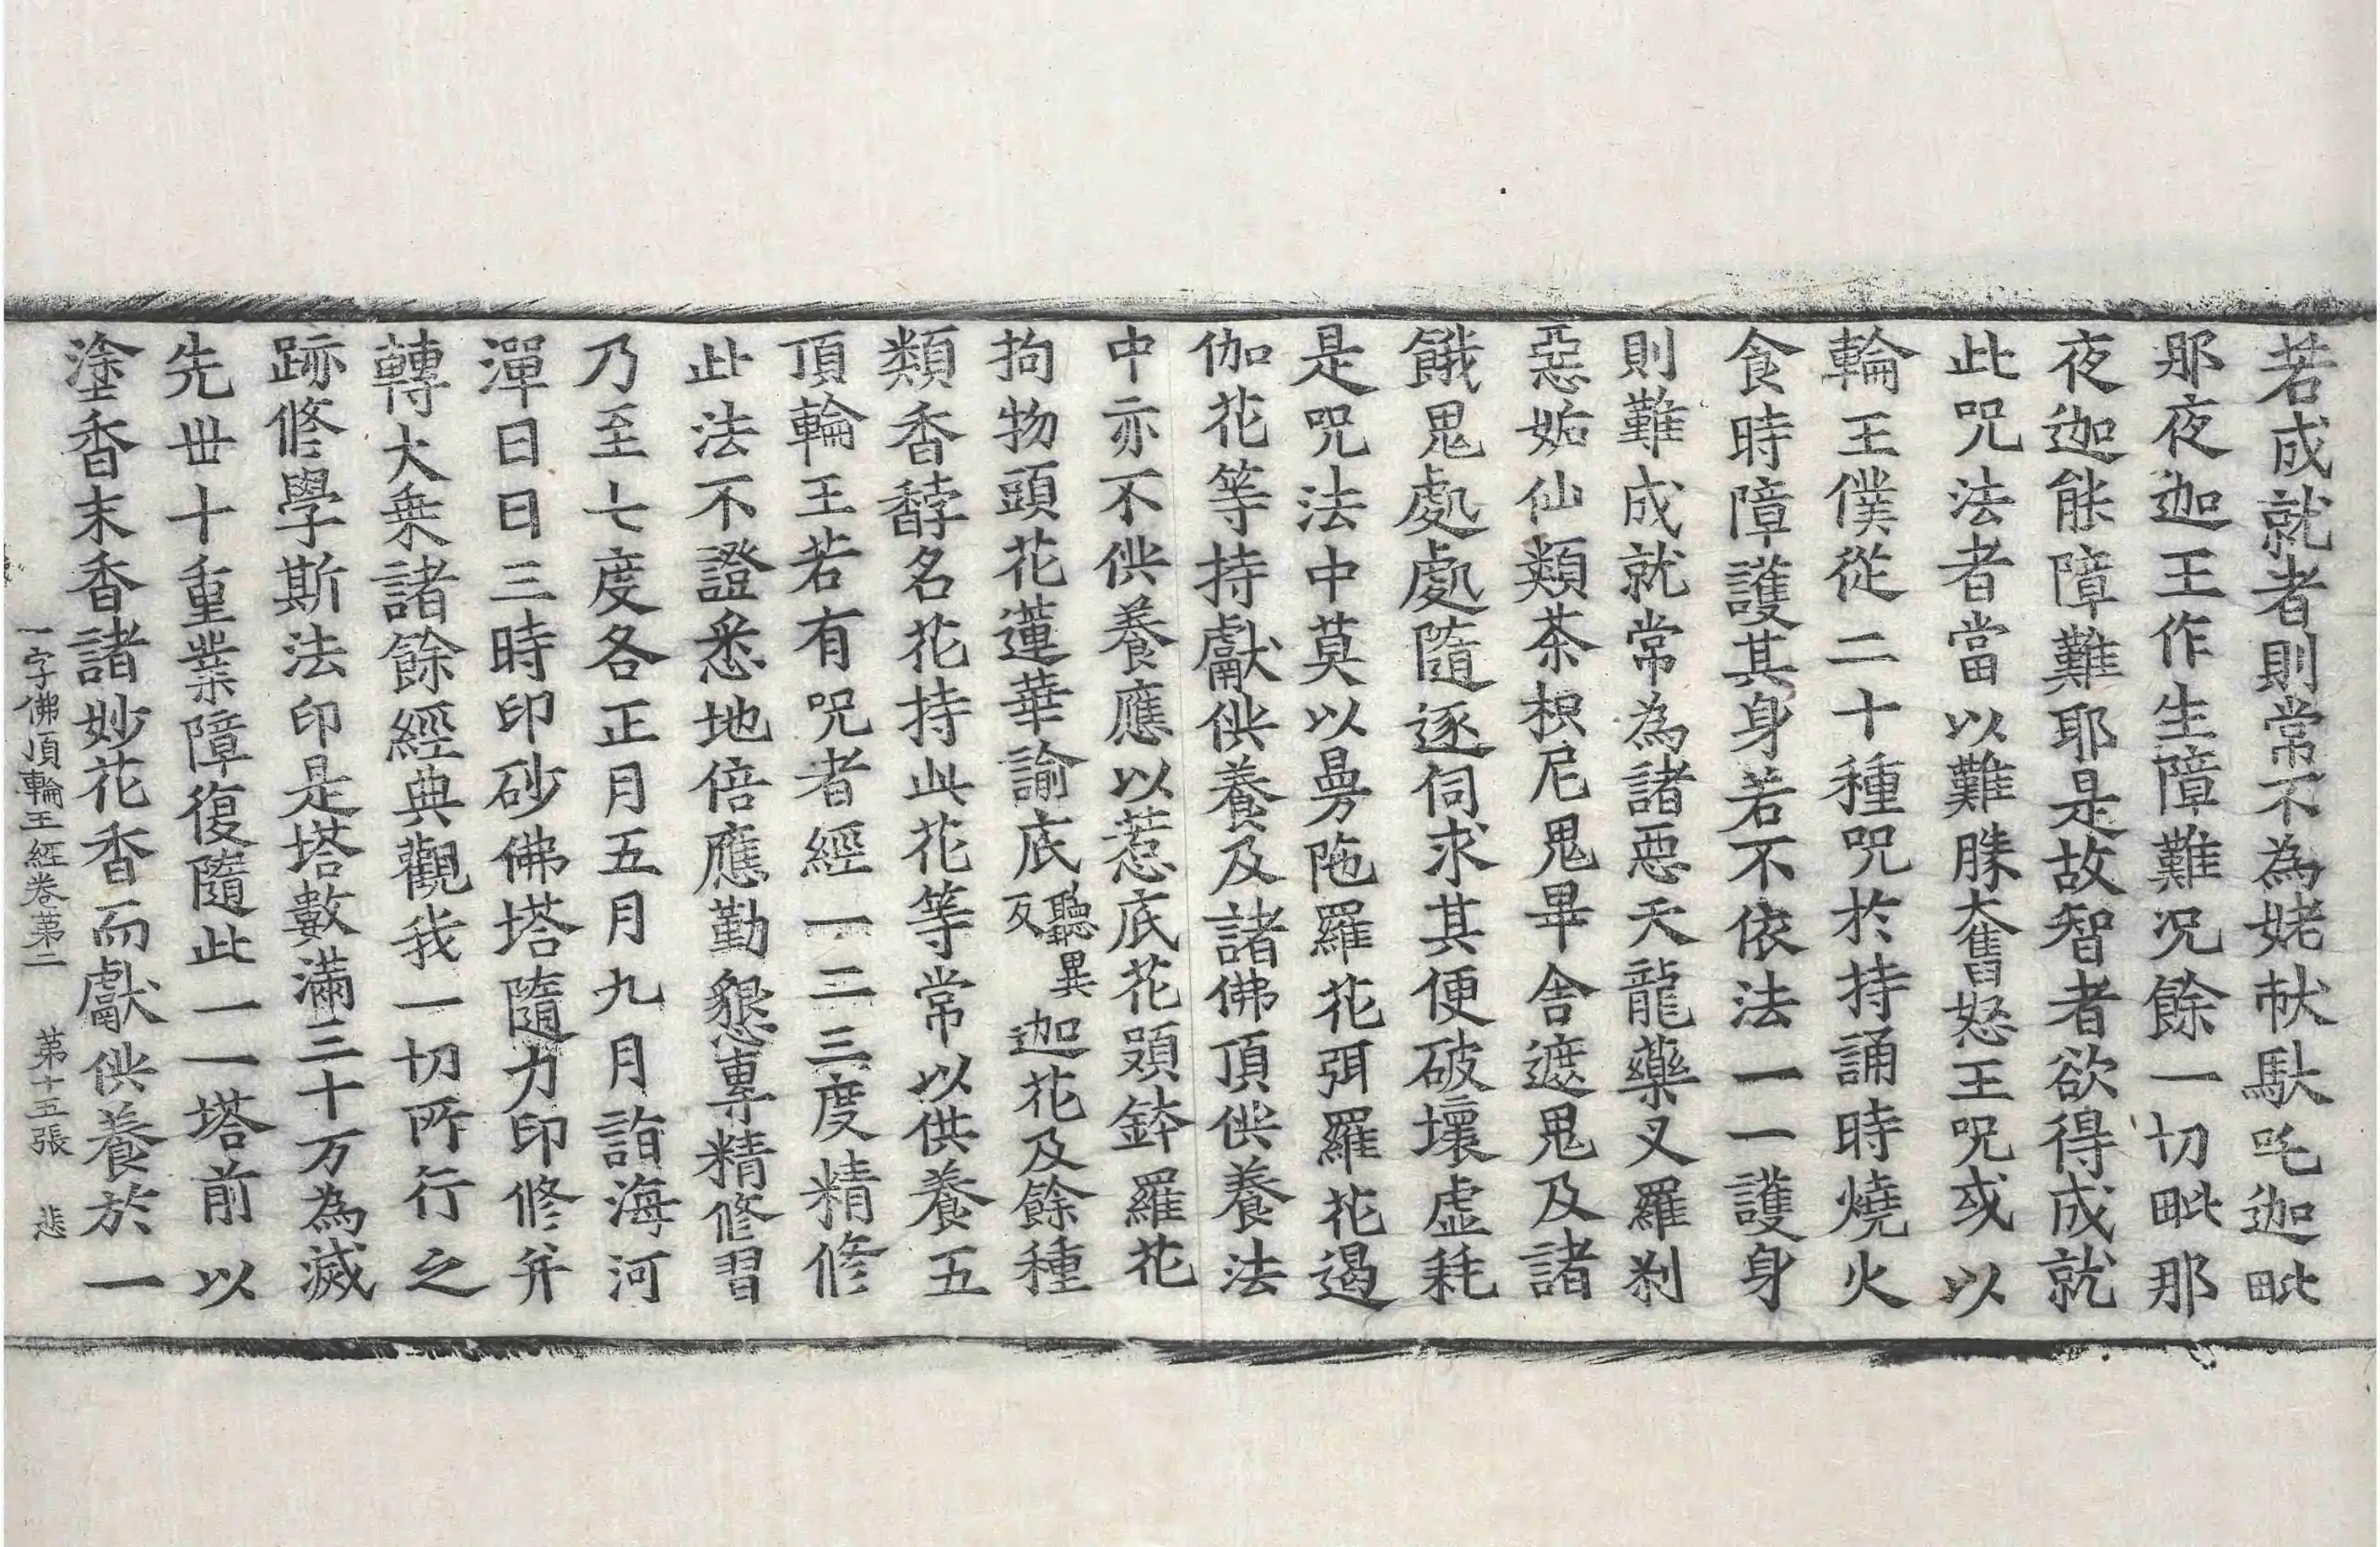 若成就者則常不為姥㹤馱吒迦毗
那夜迦王作生障難況餘一切毗那
夜迦能障難耶是故智者欲得成就
此咒法者當以難勝奮怒王咒或以
輪王僕從二十種咒於持誦時燒火
食時障護其身若不依法一一護身
則難成就常為諸惡天龍藥叉羅剎
惡妬仙類茶枳尼鬼畢舍遮鬼及諸
餓鬼處處隨逐伺求其便破壞虛耗
是咒法中莫以曼陁羅花弭羅花遏
伽花等持獻供養及諸佛頂供養法
中亦不供養應以惹底花頞鉢羅花
拘物頭花蓮華諭底聽異反迦花及餘種
類香馞名花持此花等常以供養五
頂輪王若有咒者經一二三度精修
此法不證悉地倍應勤懇專精修習
乃至七度各正月五月九月詣海河
潬日日三時印砂佛塔隨力印修并
轉大乘諸餘經典觀我一切所行之
跡修學斯法印是塔數滿三十万為滅
先世十重業障復隨此一一塔前以
塗香末香諸妙花香而獻供養於一
一字佛頂輪王經卷第二 第十五張 悲